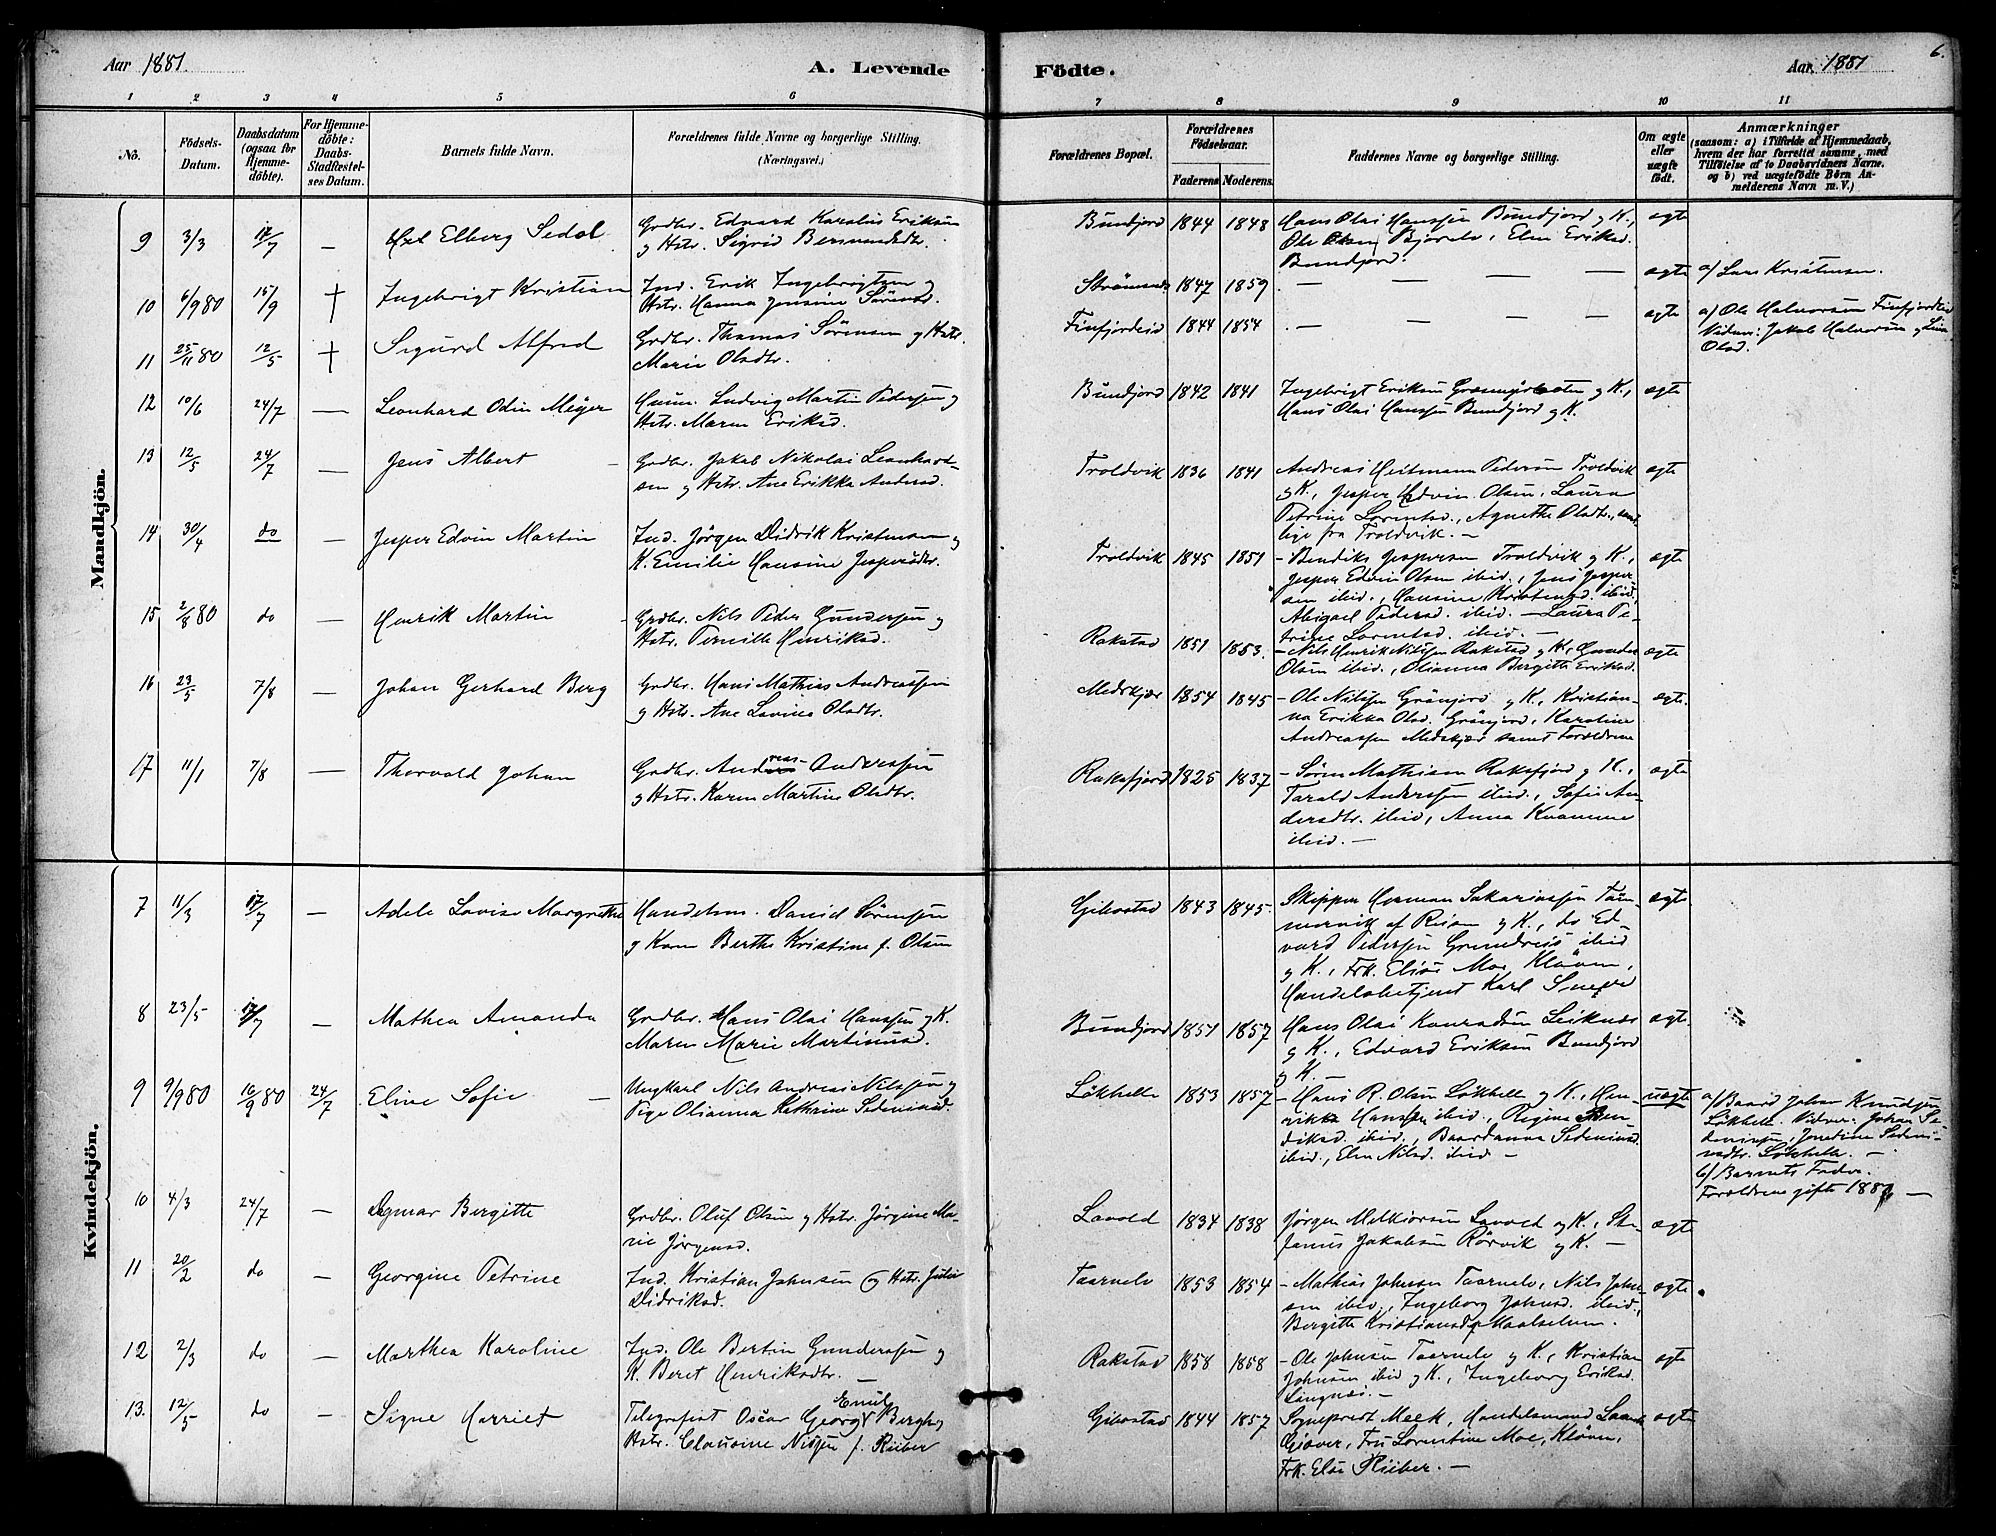 Aar 1881.
A. Levende Fødte.
Aar 1881
6.
1 2 3 4 5 6 7 8 9 10 11
No.
Fødsels-Datum.
Daabsdatum (ogsaa for Hjemme-døbte).
For Hjemme-døbte: Daabs-Stadfæstel-ses Datum.
Barnets fulde Navn.
Forældrenes fulde Navne og borgerlige Stilling.
(Næringsvei.)
Forældrenes Bopæl.
Forældrenes Fødselsaar.
Faderens Moderens.
Faddernes Navne og borgerlige Stilling.
Om ægte eller uægte født.
Anmærkninger
(saasom: a) i Tilfælde af Hjemmedaab,
hvem der har forrettet samme, med
Tilføielse af to Daabsvidners Navne,
og b) ved uægtefødte Børn An-
melderens Navn m. V.)
Mandkjön.
9 3/3 17/7 — Axel Elberg Sedol
Grdbr. Edvard Karolius Eriksen
og Hstr. Sigrid
Bundjord 1844 1848
Hans Olai Hanssen Bundjord og K.,
Ole Olsen Bjorelv, Elen Eriksd.
Bundjord.
ægte
10 6/9 80 15/9 † Ingebrigt Kristian
Ind. Erik Ingebrigtsen og
Hstr. Hanna Jensine Sørensd.
Strømsnes 1847 1859 — — — — ægte
a/ Lars Kristensen.
11 25/11 80 12/5 † Sigurd Alfred
Grdbr. Thomas Sørensen og Hstr.
Marie Olsdtr.
Finfjordeid 1844 1854 — — — — ægte
a/ Ole Halvorsen Finfjordeid
Vidner: Jakob Halvorsen og
Olsd.
12 10/6 24/7 — Leonhard Odin Meyer
Huum. Ludvig Martin Pedersen og
Hstr. Maren Eriksd.
Bundjord 1842 1841
Ingebrigt Eriksen og K.,
Hans Olai Hanssen Bundjord og K.
ægte
13 12/5 24/7 — Jens Albert
Grdbr. Jakob Nikolai Leonhard-
sen og Hstr. Ane Erikka Andersd.
Troldvik 1836 1841
Andreas Heitmann Pedersen Troldvik
og K., Jesper Edvin Olsen, Laura
Petrine Lorentsd., Agnethe Olsdtr., sam-
lige fra Troldvik. —
ægte
14 30/4 do — Jesper Edvin Martin
Ind. Jørgen Didrik Kristensen og
K. Emilie Hansine Jespersdtr.
Troldvik 1845 1851
— Bendiks Jespersen Troldvik og K.,
Jesper Edvin Olsen ibid., Jens Jesper-
sen ibid., Hansine Kristensd. ibid.,
Abigael Pedersd. ibid. — Laura Pe-
trine Lorentsd. ibid. —
ægte
15 2/8 80 do — Henrik Martin
Grdbr. Nils Peder Gundersen og
Hstr. Pernille Henriksd.
Rakstad 1851 1853.
— Nils Henrik Nilssen Rakstad og K., Gunder
Olsen ibid., Olianna Bergitte Eriksd.
ægte
16 23/5 7/8 — Johan Gerhard Berg
Grdbr. Hans Mathias Andreassen
og Hstr. Ane Lovise Olsdtr.
Medskjær 1854 1845
— Ole Nilssen Grønjord og K., Kristian-
na Erikka Olsd. Grønjord, Karoline
Andreassen Medskjær samt Forældrene
ægte.
17 11/1 7/8 — Thorvald Johan
Grdbr. Andreas Andersen
og Hstr. Karen Martine Olsdtr.
Rakefjord 1825 1837
— Søren Mathisen Rakefjord og K.,
Tarald Anderssen ibid., Sofie An-
dersdtr. ibid., Anna Kvamme
ibid. —
ægte
Kvindekjön.
7 11/3 17/7 — Adele Lovise Margrethe
Handelsm. David Sørensen
og Kone Berthe Kristine f. Olsen
Gibostad 1843 1845.
Skipper Herman Sakariassen Tøm-
mervik af og K., do Ed-
vard Pedersen ibid
og K., Frk. Elise Moe, Kløven,
Handelsbetjent Karl
ægte
8 23/5 17/7 — Mathea Amanda
Grdbr. Hans Olai Hanssen og K.
Maren Marie Martinusd.
Bundjord 1851 1857
Hans Olai Konradsen Leiknes
og K., Edvard Eriksen Bundjord
og K. —
ægte.
9 9/9 80 16/9 80 24/7 Eline Sofie —
Ungkarl Nils Andreas Nilssen og
Pige Olianna Kathrine Sedeniusd.
Løkhelle 1853 1857
— Hans R. Olsen Løkhelle og K., Hen-
rikke Hanssen ibid., Regine Ben-
diksd. ibid., Baardanna Sedeniusd.
ibid., Elen Nilsd. ibid —
uægte
a/ Baard Johan Knudsen
Løkhelle. Vidner: Johan Se-
deniusen, Jonetine Sedeni-
usdtr. Løkhelle. —
b/ Barnets Fader.
Forældrene gifte 1881 —
10 4/3 24/7 — Dagmar Bergitte
Grdbr. Oluf Olsen og Hstr. Jørgine Ma-
rie Jørgensd.
Lavold 1834 1838
Jørgen Melkiorsen Lavold og K., Ste-
fanus Jakobsen Rørvik og K. —
ægte
11 20/2 do — Georgine Petrine
Ind. Kristian Johnsen og Hstr.
Didriksd.
Taarnelv 1853 1854
— Mathias Johnsen Taarnelv, Nils John-
sen ibid., Ingeborg Johnsd. ibid.,
Bergitte Kristiansd. Maalselven.
ægte
12 2/3 do — Marthea Karoline
Ind. Ole Bertin Gunderssen og
K. Beret Henriksdtr. —
Rakstad 1858 1858
— Ole Johnsen Taarnelv og K., Kristian
Johnsen ibid og K., Ingeborg Eriksd.
Lingnæs. —
ægte
13. 12/5 do — Signe Harriet
Telegrafist Oscar Georg Emil Bergh og
Hstr. Clausine Nissen f. Rieber
Gibostad 1844 1857
Sogneprest Meek, Handelsmand
Giæver, Fru Lorentine Moe, Kløven,
Frk. Elise Rieber. —
ægte